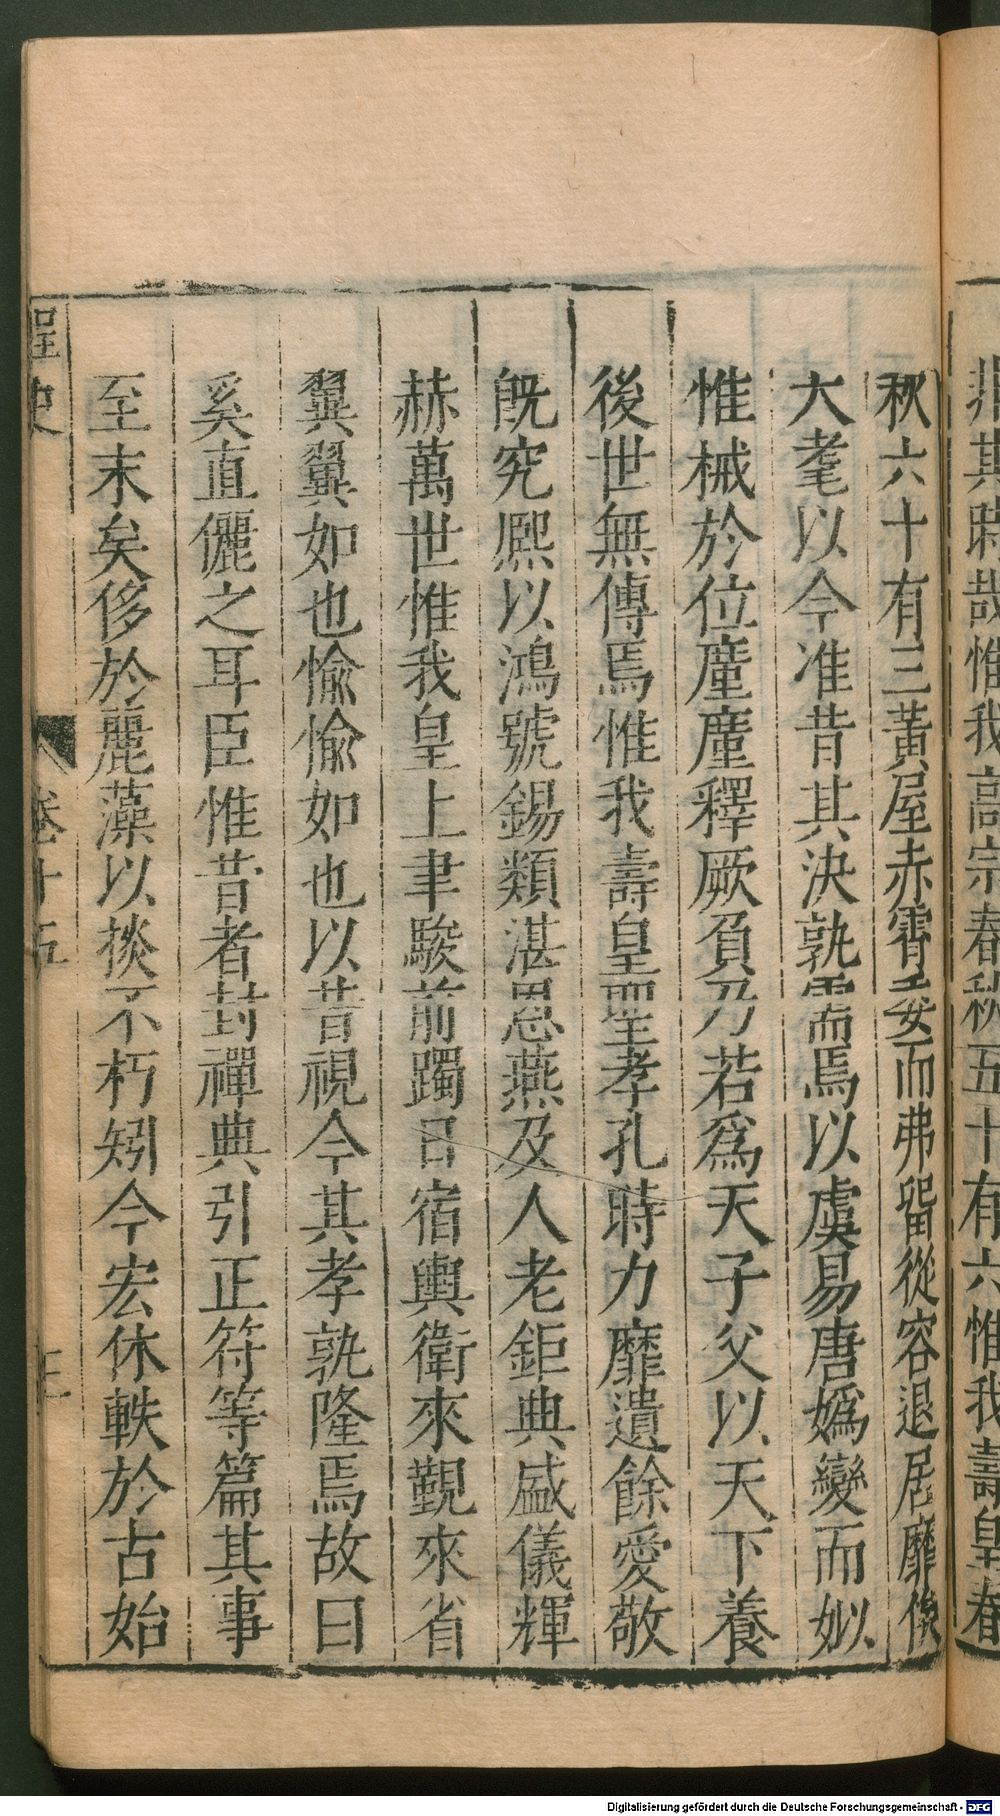 非其時哉惟我高宗春秋五十有六惟我壽皇春
秋六十有三黃屋赤霄委而弗留從容退居靡俟
大耄以今准昔其決孰需焉以虞易唐嬀變而姒
惟械於位廑廑釋厥負乃若爲天子父以天下養
後世無傳焉惟我壽皇聖孝孔時力靡遺餘愛敬
旣究熈以鴻號錫類湛恩燕及人老鉅典盛儀輝
赫萬世惟我皇上聿駿前躅日宿輿衛來覲來省
翼翼如也愉愉如也以昔視今其孝孰隆焉故曰
奚直儷之耳臣惟昔者封禪典引正符等篇其事
至末矣侈於麗藻以掞不朽矧今宏休軼於古始
桯史
卷十五
Digitalisierung gefördert durch die Deutsche Forschungsgemeinschaft - DFG